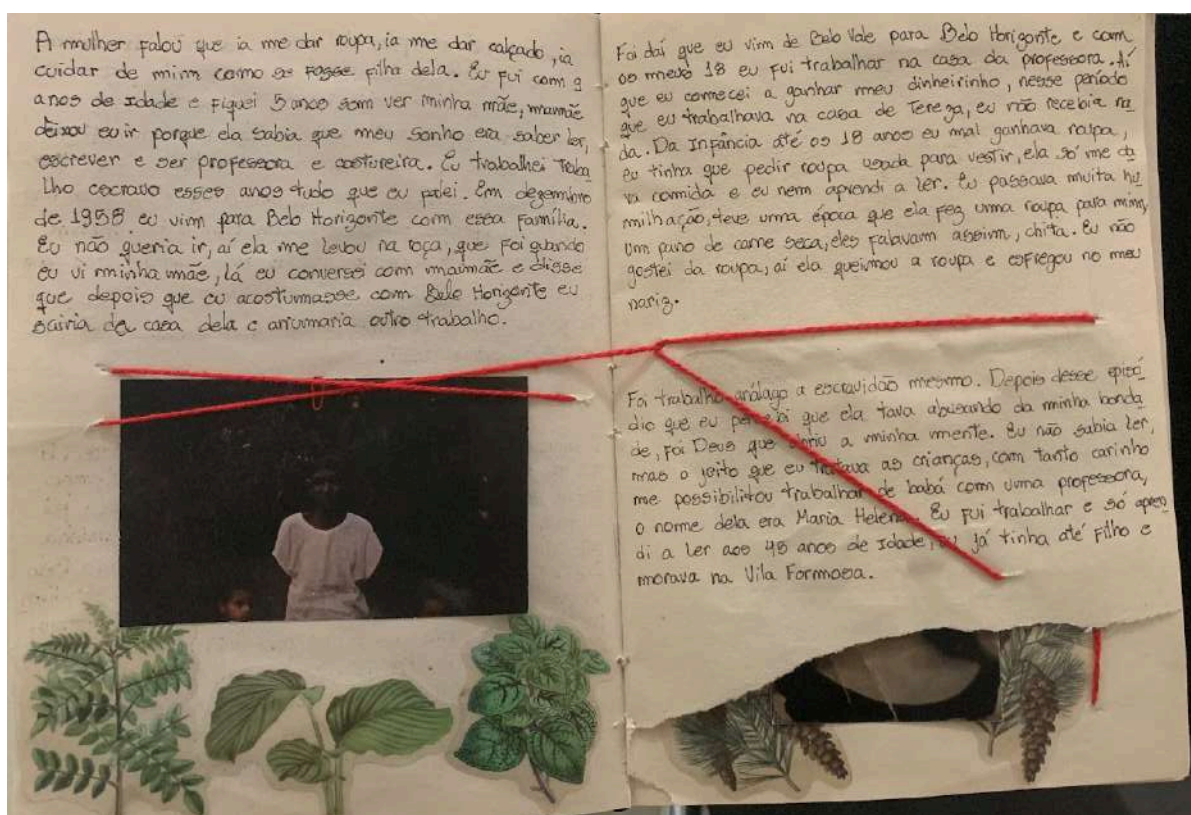 A mulher falou que ia me dar roupa, ia me dar calçado, ia
cuidar de mim como se fosse filha dela. Eu fui com 9
anos de Idade e fiquei 5 anos sem ver minha mãe, mamãe
deixou eu ir porque ela sabia que meu sonho era saber ler,
escrever e ser professora e costureira. Eu trabalhei Traba
lho escravo esses anos tudo que eu falei. Em dezembro
de 1958 eu vim para Belo Horizonte com essa família.
Eu não queria ir, aí ela me levou na roça, que foi quando
eu vi minha mãe, lá eu conversei com mamãe e disse
que depois que eu acostumasse com Belo Horizonte eu
sairia da casa dela e arrumaria outro trabalho.
Foi daí que eu vim de Belo Vale para Belo Horizonte e com
os meus 18 eu fui trabalhar na casa da professora. Aí
que eu comecei a ganhar meu dinheirinho, nesse período
que eu trabalhava na casa de Tereza, eu não recebia na
da. Da Infância até os 18 anos eu mal ganhava roupa,
eu tinha que pedir roupa usada para vestir, ela só me da
va comida e eu nem aprendi a ler. Eu passava muita hu
milhação, teve uma época que ela fez uma roupa para mim,
um pano de carne seca, eles falavam assim, chita. Eu não
gostei da roupa, aí ela queimou a roupa e esfregou no meu
nariz.
Foi trabalho análago a escravidão mesmo. Depois desse episó
dio que eu percebi que ela tava abusando da minha bonda
de, foi Deus que abriu a minha mente. Eu não sabia ler,
mas o jeito que eu tratava as crianças, com tanto carinho
me possibilitou trabalhar de babá com uma professora,
o nome dela era Maria Helena. Eu fui trabalhar e só apren
di a ler aos 45 anos de Idade, eu já tinha até filho e
morava na Vila Formosa.